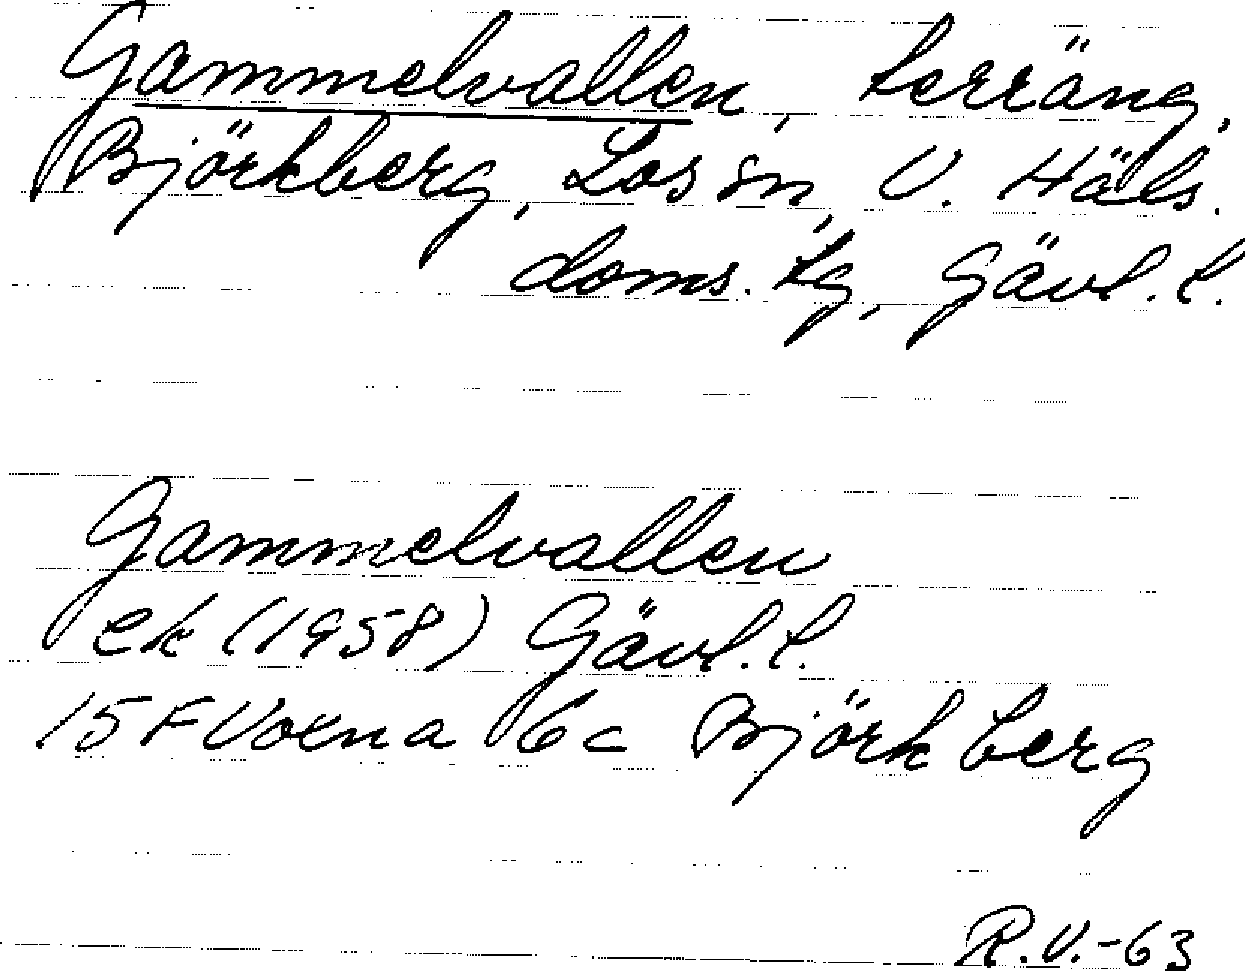 Gammelvallen, terräng,
Björkberg, Los sn, V. Häls.
doms. tg, Gävl. l.
Gammelvallen
ek (1958) Gävl. l.
15 F Voxna 6c Björkberg
R.V.-63